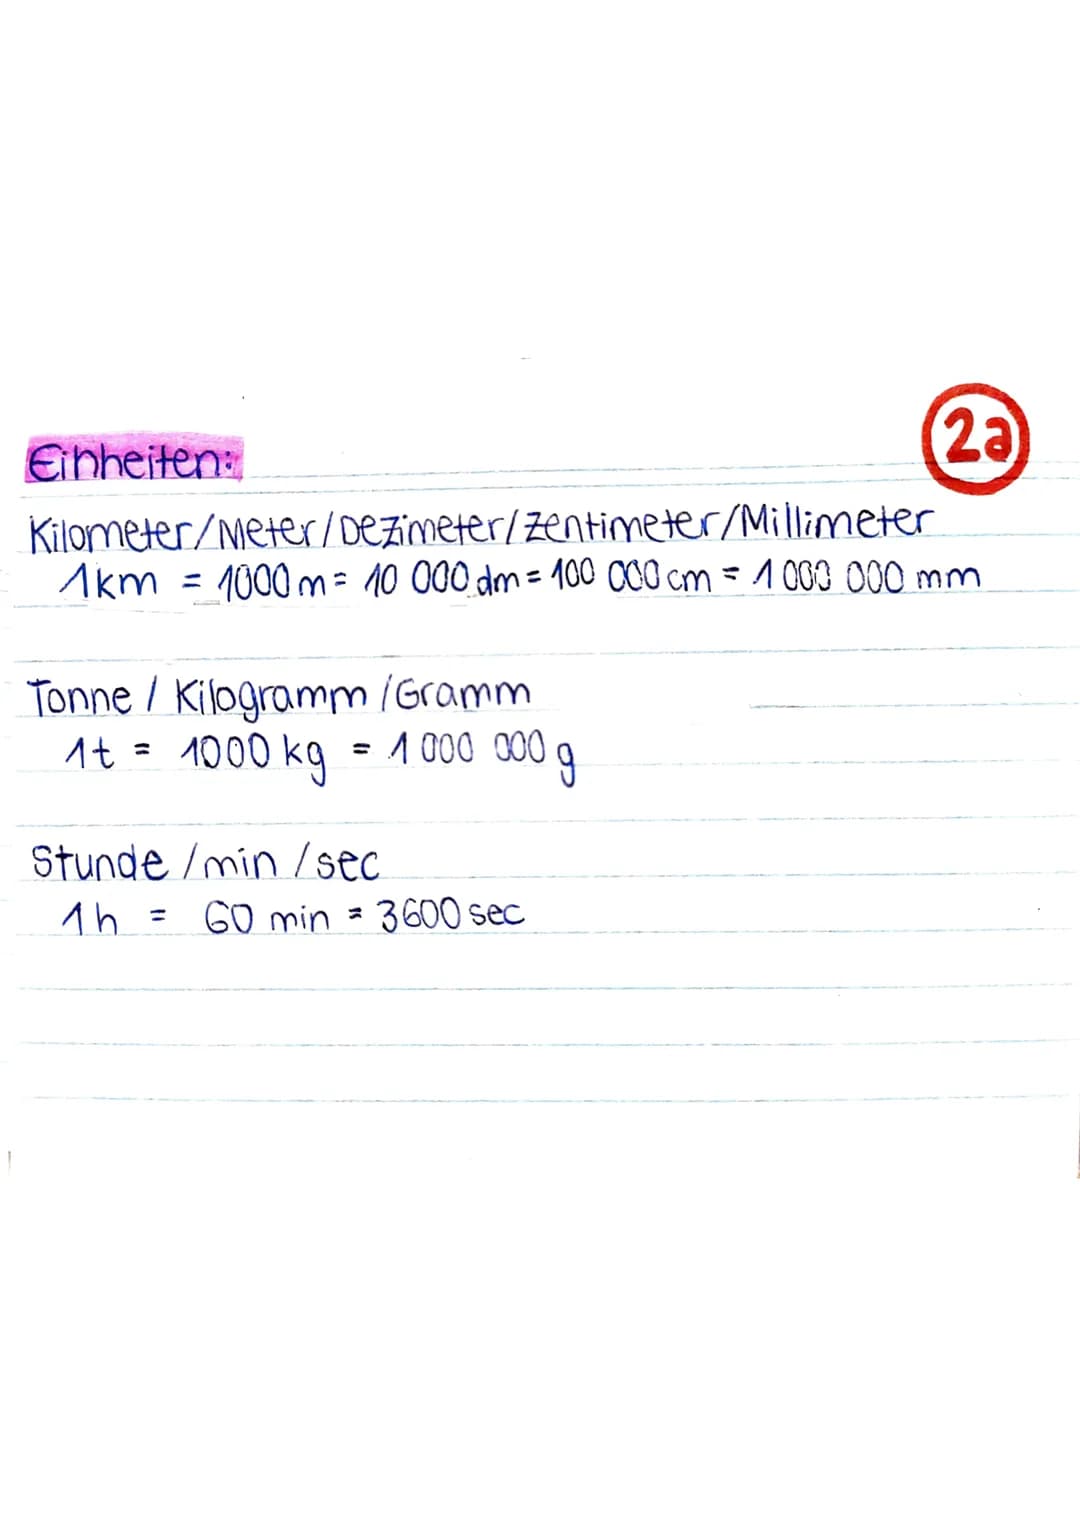 2a
Einheiten:
Kilometer/Meter/Dezimeter/Zentimeter/Millimeter
1km = 1000 m = 10 000 dm = 100 000 cm = 1 000 000 mm
Tonne / Kilogramm /Gramm
1t = 1000 kg = 1 000 000 g
Stunde /min /sec
1h = 60 min = 3600 sec